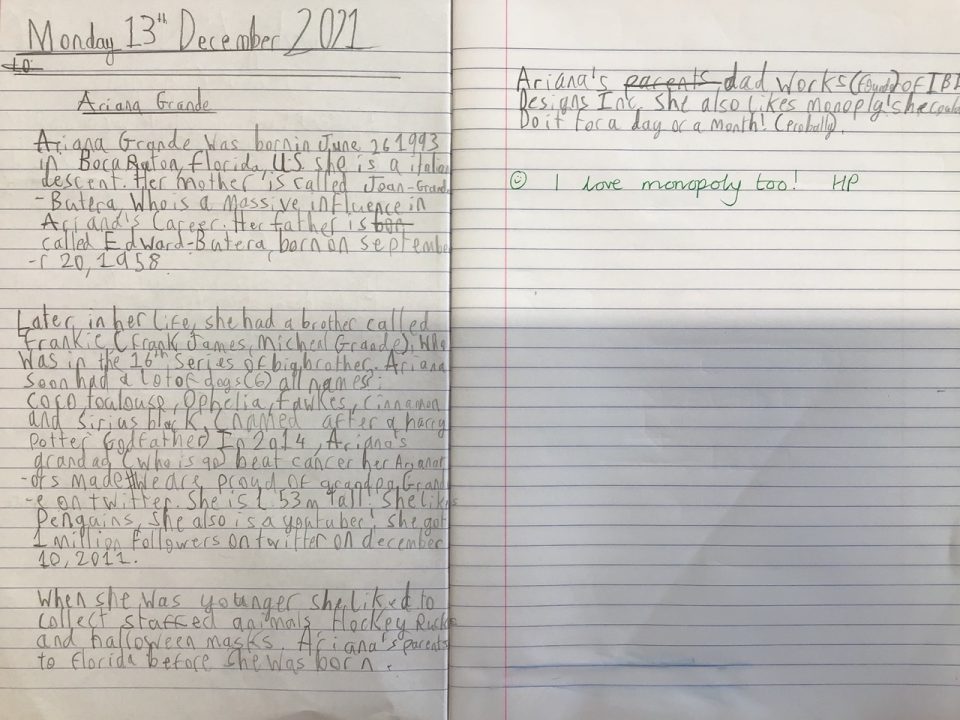 Monday 13th December 2021
LO:
Ariana Grande
Ariana Grande was born in June 26 1993
in Boca Raton, Florida, U.S she is a italian
descent. Her mother is called Joan-Grande
-Butera, Who is a massive influence in
Ariana's Career. Her father is born
called Edward-Butera, born on Septembe
-r 20, 1958
Later, in her life, she had a brother called
Frankie (Frank James, Micheal Grande), Who
was in the 16th Series of big brother. Ariana
soon had a lot of dogs (6) all names:
coco toulouse, Ophelia, fawkes, cinnamon
and Sirius black, (named after a harry
Potter Godfather) In 2014, Ariana's
grandad (who is 90) beat cancer her Arianat
-ors made #We are proud of grandpa Grand
-e on twitter. She is 1.53m tall! She likes
Penguins, she also is a youtuber! she got
1 million followers on twitter on december
10, 2011.
When she was younger she liked to
collect staffed animals Hockey Rucks
and halloween masks. Ariana's parents
to florida before she was born.
Ariana's parents dad works (found) of IBI
Designs Inc, she also likes monoply! she could
Do it for a day or a month! (probally).
I love monopoly too! HP